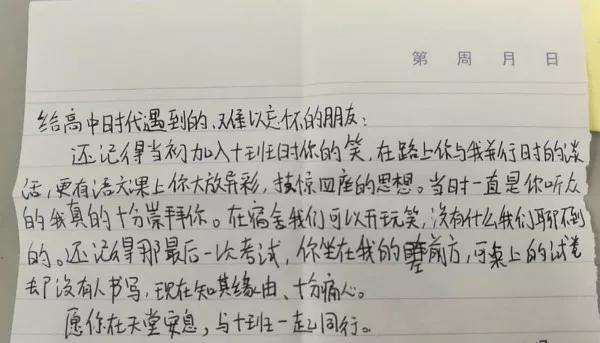 第 周 月 日
给高中时代遇到的、难以忘怀的朋友：
还记得当初加入十班时你的笑，在路上你与我并行时的谈
话，更有语文课上你大放异彩，技惊四座的思想。当时一直是你听众
的我真的十分崇拜你。在宿舍我们可以开玩笑，没有什么我们聊不到
的。还记得那最后一次考试，你坐在我的 前方，可桌上的试卷
却没有人书写，现在知其缘由、十分痛心。
愿你在天堂安息，与十班一起同行。